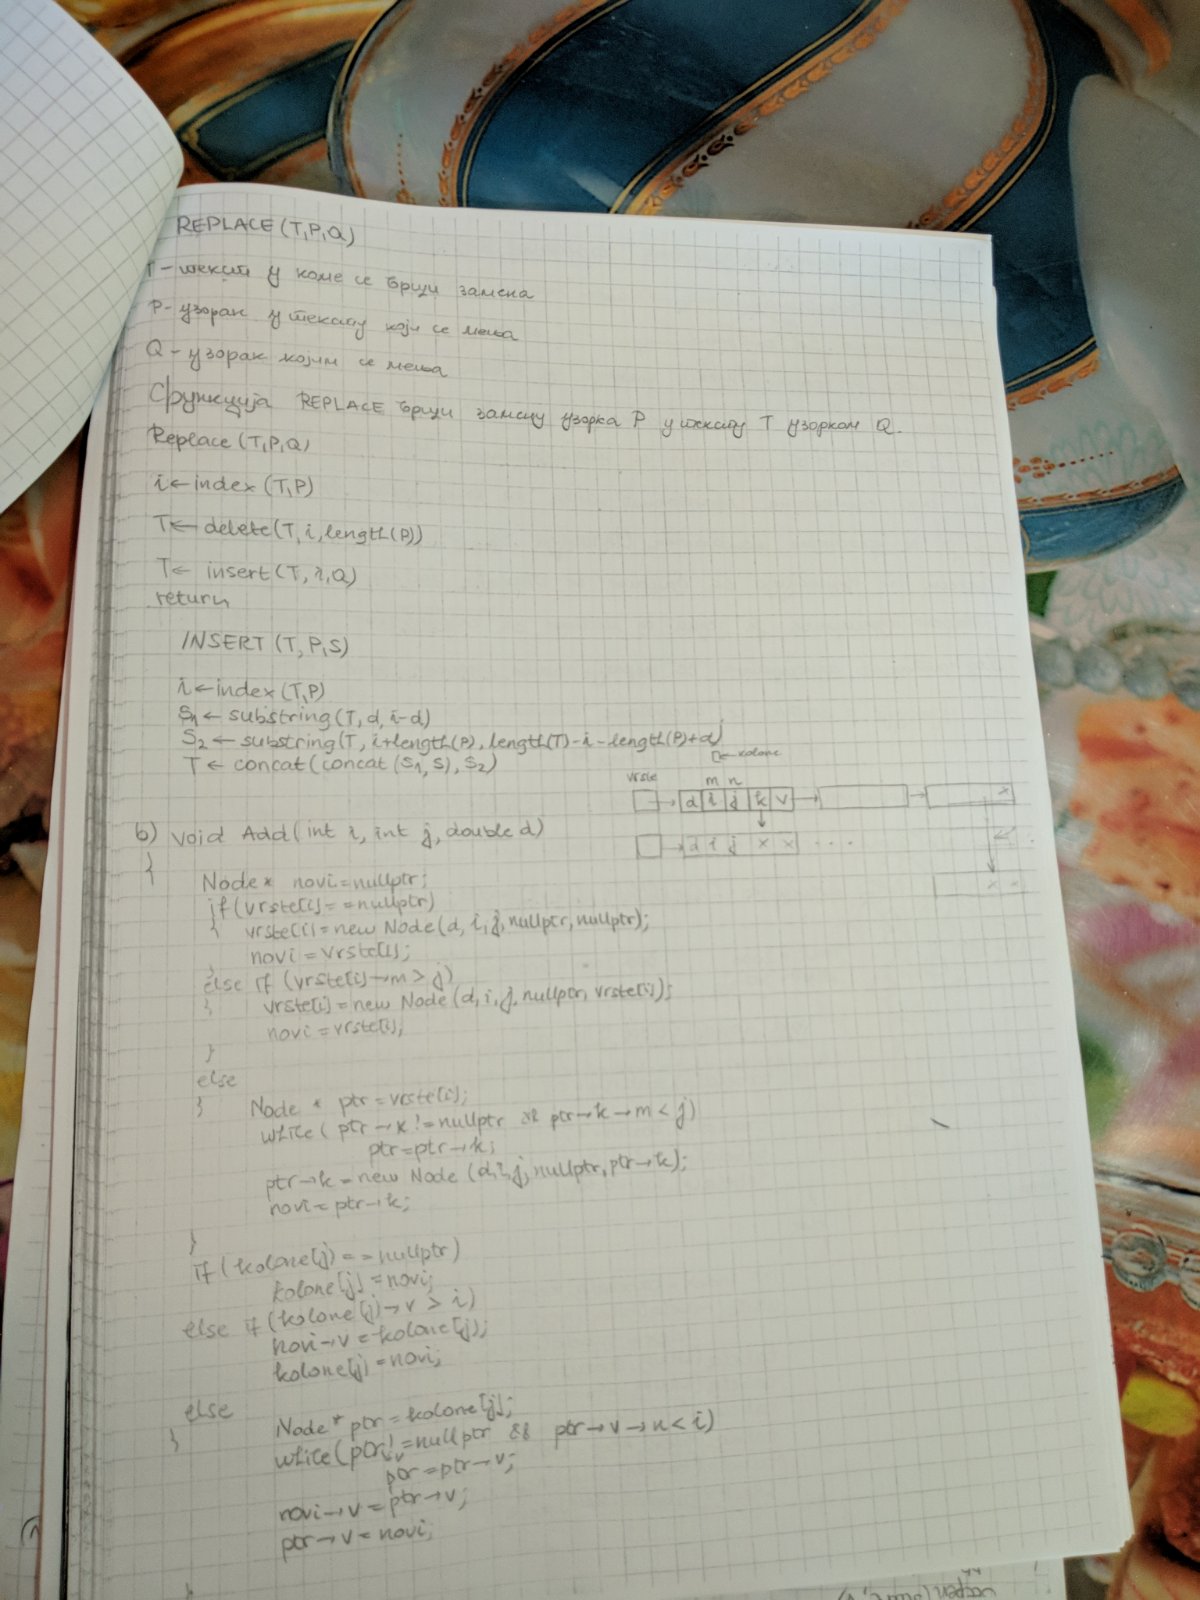 REPLACE(T,P,Q)
T - текст у коме се врши замена
P - узорак у тексту који се мења
Q - узорак којим се мења
Функција REPLACE врши замену узорка P у тексту T узорком Q.
Replace (T,P,Q)
i ← index (T,P)
T ← delete(T, i, length(P))
T ← insert (T, i, Q)
return
INSERT (T, P, S)
i ← index (T,P)
S1 ← substring (T, d, i-d)
S2 ← substring(T, i+length(P), length(T)-i-length(P)+d)
T ← concat (concat (S1, S), S2)
j
← kolone
vrste m n
d i j k v
x
b) void Add (int i, int j, double d)
d i j x x ...
{
x x
Node* novi=nullptr;
if (vrste[i]==nullptr)
{ vrste[i]=new Node(d, i, j, nullptr, nullptr);
novi=vrste[i];
}
else if (vrste[i]→m > j)
{ vrste[i]=new Node (d, i, j, nullptr, vrste[i]);
novi=vrste[i];
}
else
{ Node * ptr=vrste[i];
while( ptr→k!=nullptr && ptr→k→m < j)
ptr=ptr→k;
ptr→k=new Node (d, i, j, nullptr, ptr→k);
novi=ptr→k;
}
if (kolone[j]==nullptr)
kolone[j]=novi;
else if (kolone[j]→v > i)
novi→v=kolone[j];
kolone[j]=novi;
else
{ Node* ptr=kolone[j];
while(ptr→v!=nullptr && ptr→v→n < i)
ptr=ptr→v;
novi→v=ptr→v;
ptr→v=novi;
}